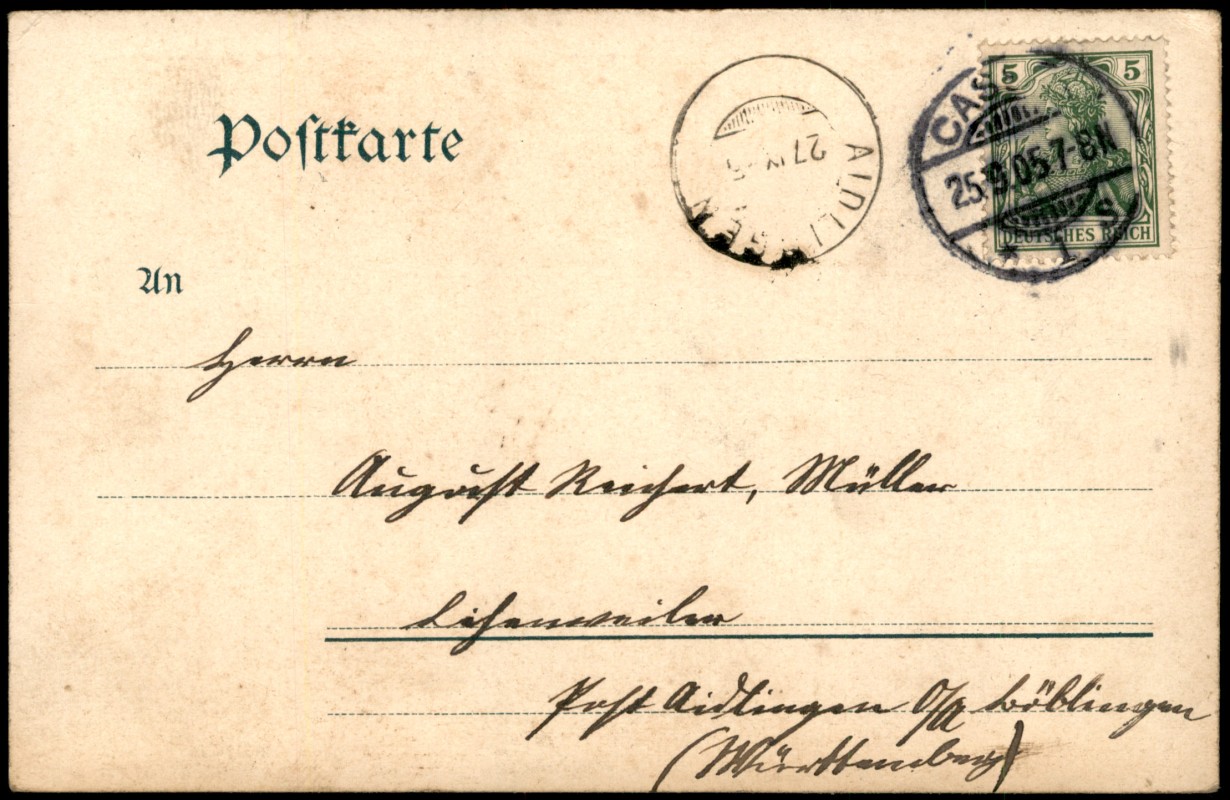 Postkarte
AIDLINGEN
27 IX
CAS
25.9.05.7-8N
* 1
5 5
DEUTSCHES REICH
An
Herrn
August Reichert, Müller
Lehenweiler
Post Aidlingen O/A Böblingen
(Württemberg)